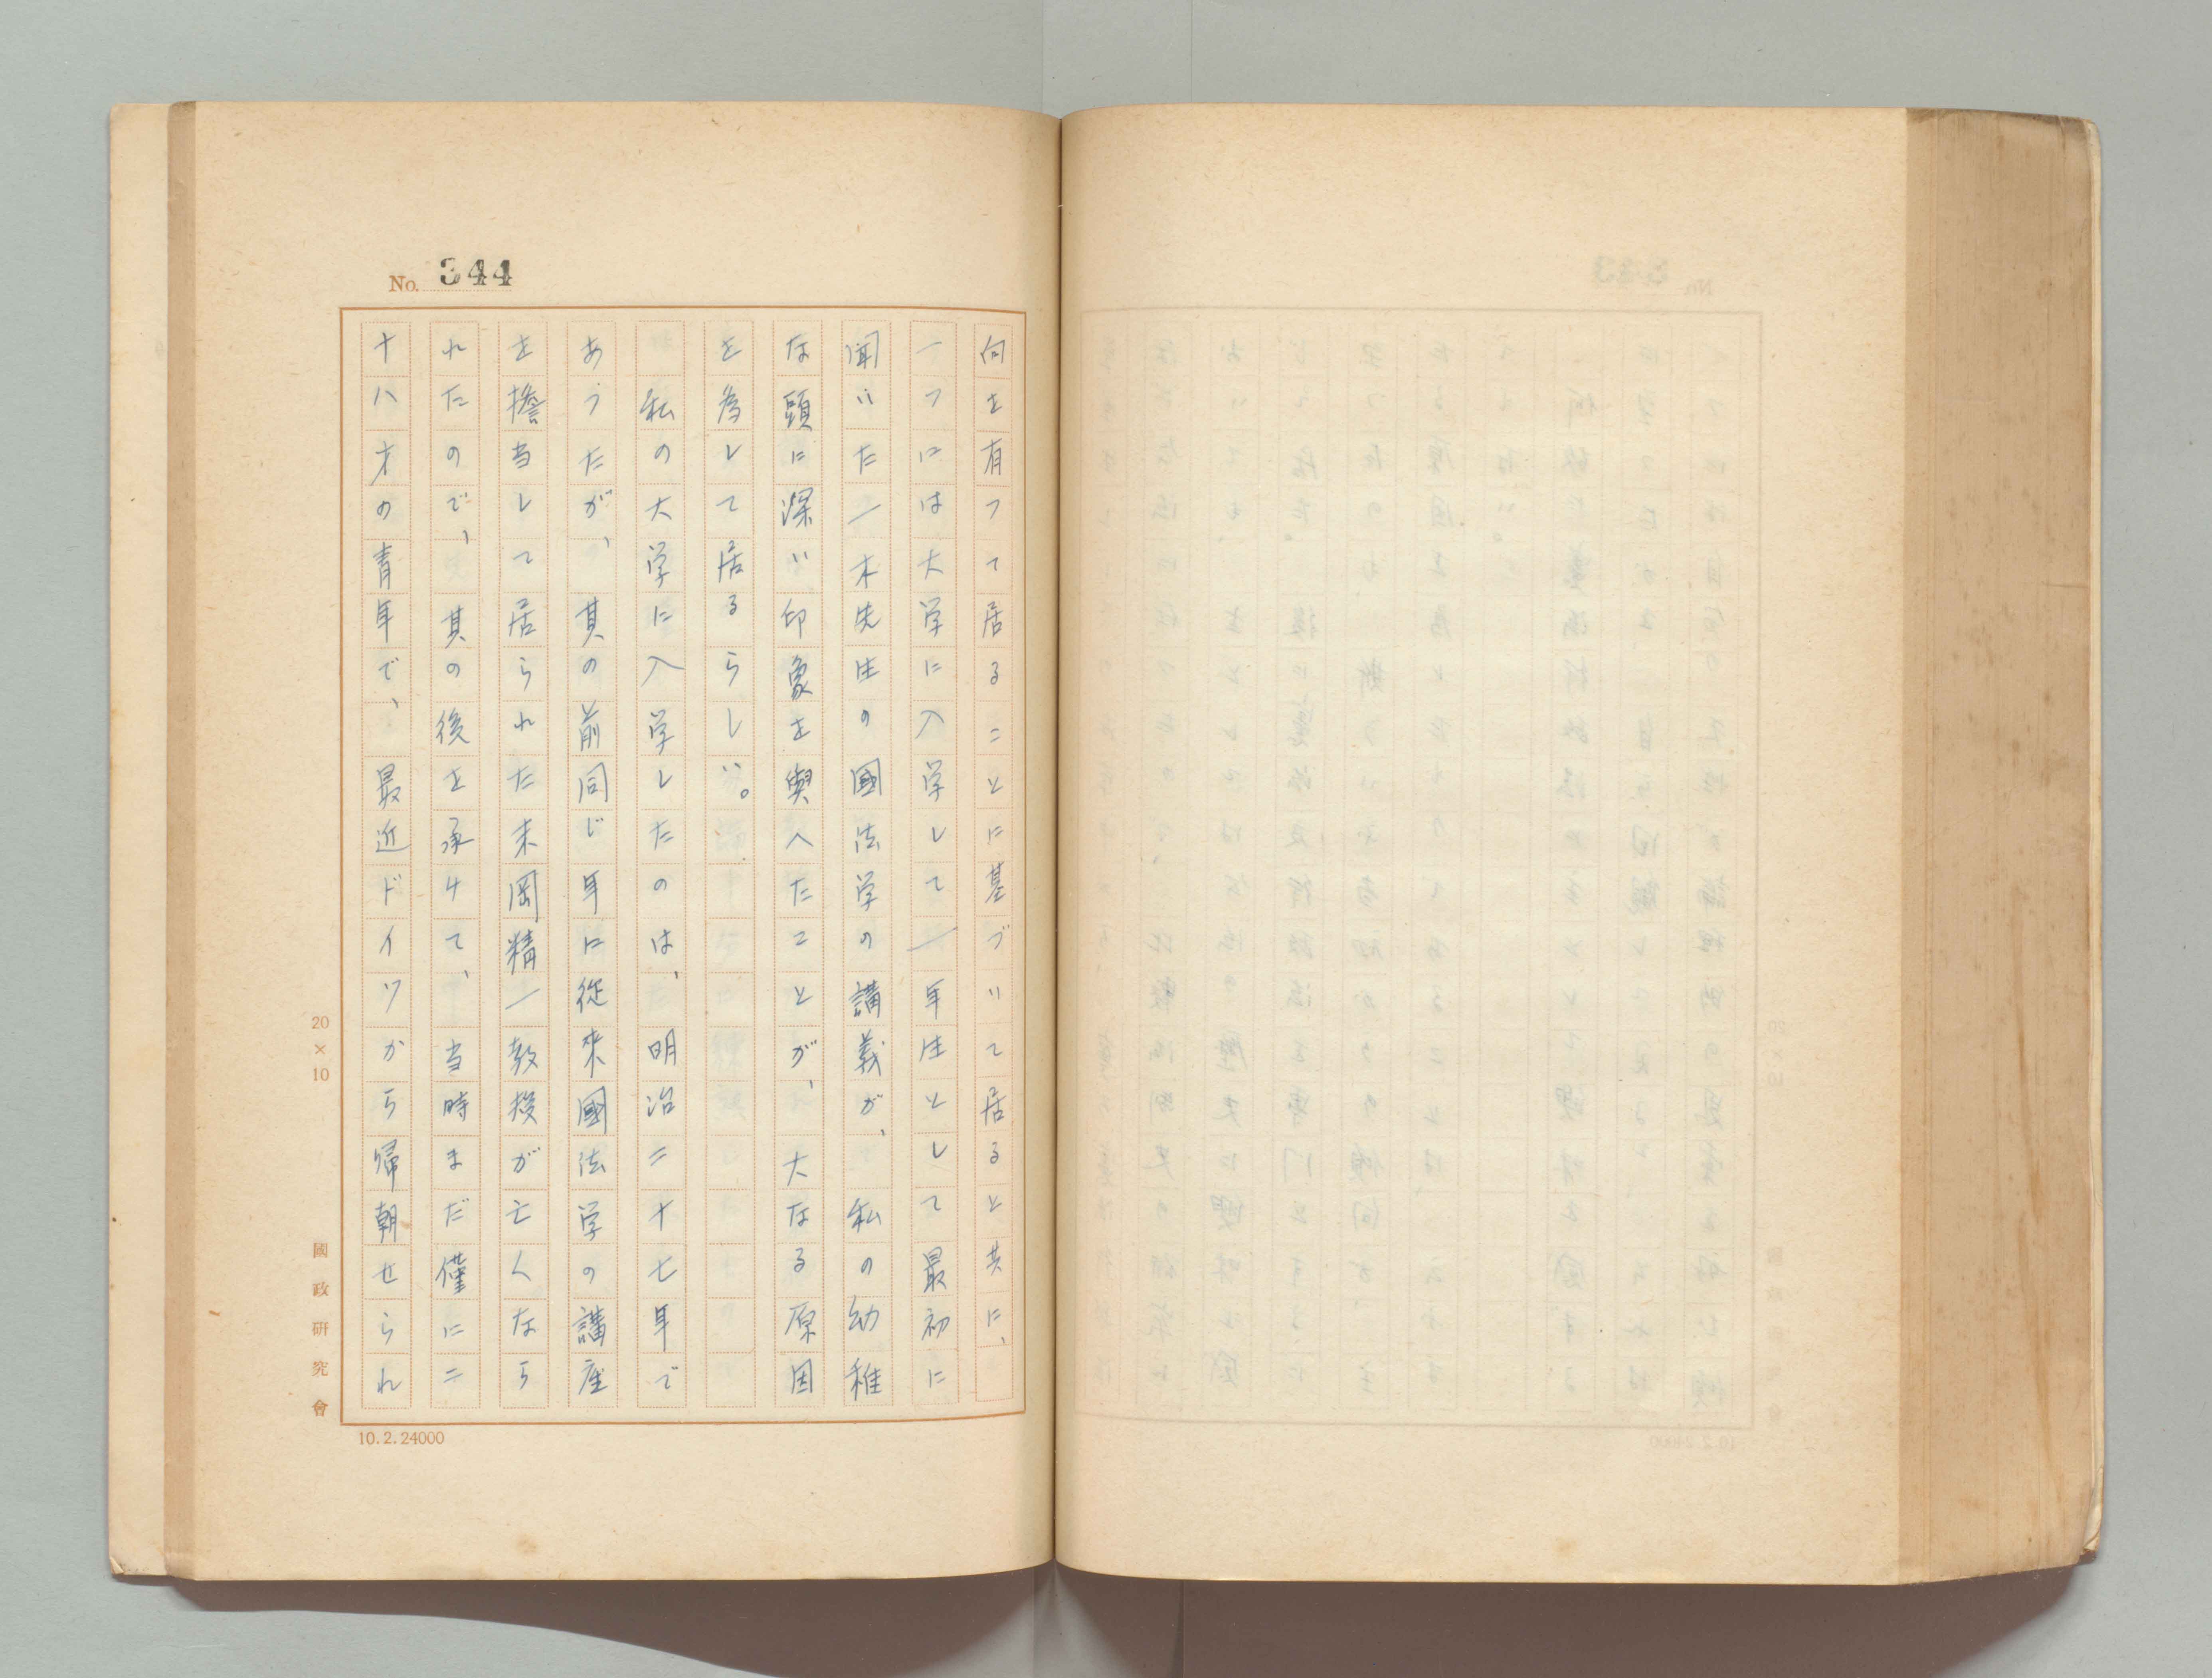 No. 344
向を有つて居ることに基づいて居ると共に、
一つには大学に入学して一年生として最初に
聞いた一木先生の國法学の講義が、私の幼稚
な頭に深い印象を與へたことが、大なる原因
を為して居るらしい。
私の大学に入学したのは、明治二十七年で
あつたが、其の前同じ年に從來國法学の講座
を擔当して居られた末岡精一教授が亡くなら
れたので、其の後を承けて、当時まだ僅に二
十八才の青年で、最近ドイツから帰朝せられ
20×10
國政研究會
10.2.24000